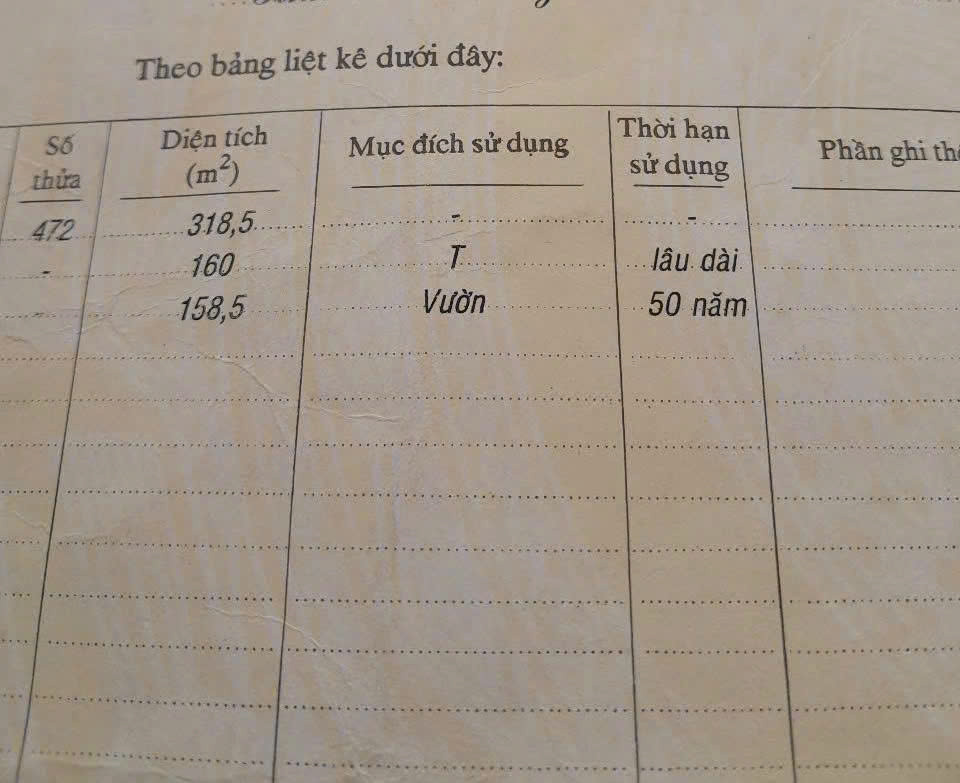 Theo bảng liệt kê dưới đây:
Số thửa | Diện tích (m²) | Mục đích sử dụng | Thời hạn sử dụng | Phần ghi
472 | 318,5 | - | -
- | 160 | T | lâu dài
- | 158,5 | Vườn | 50 năm